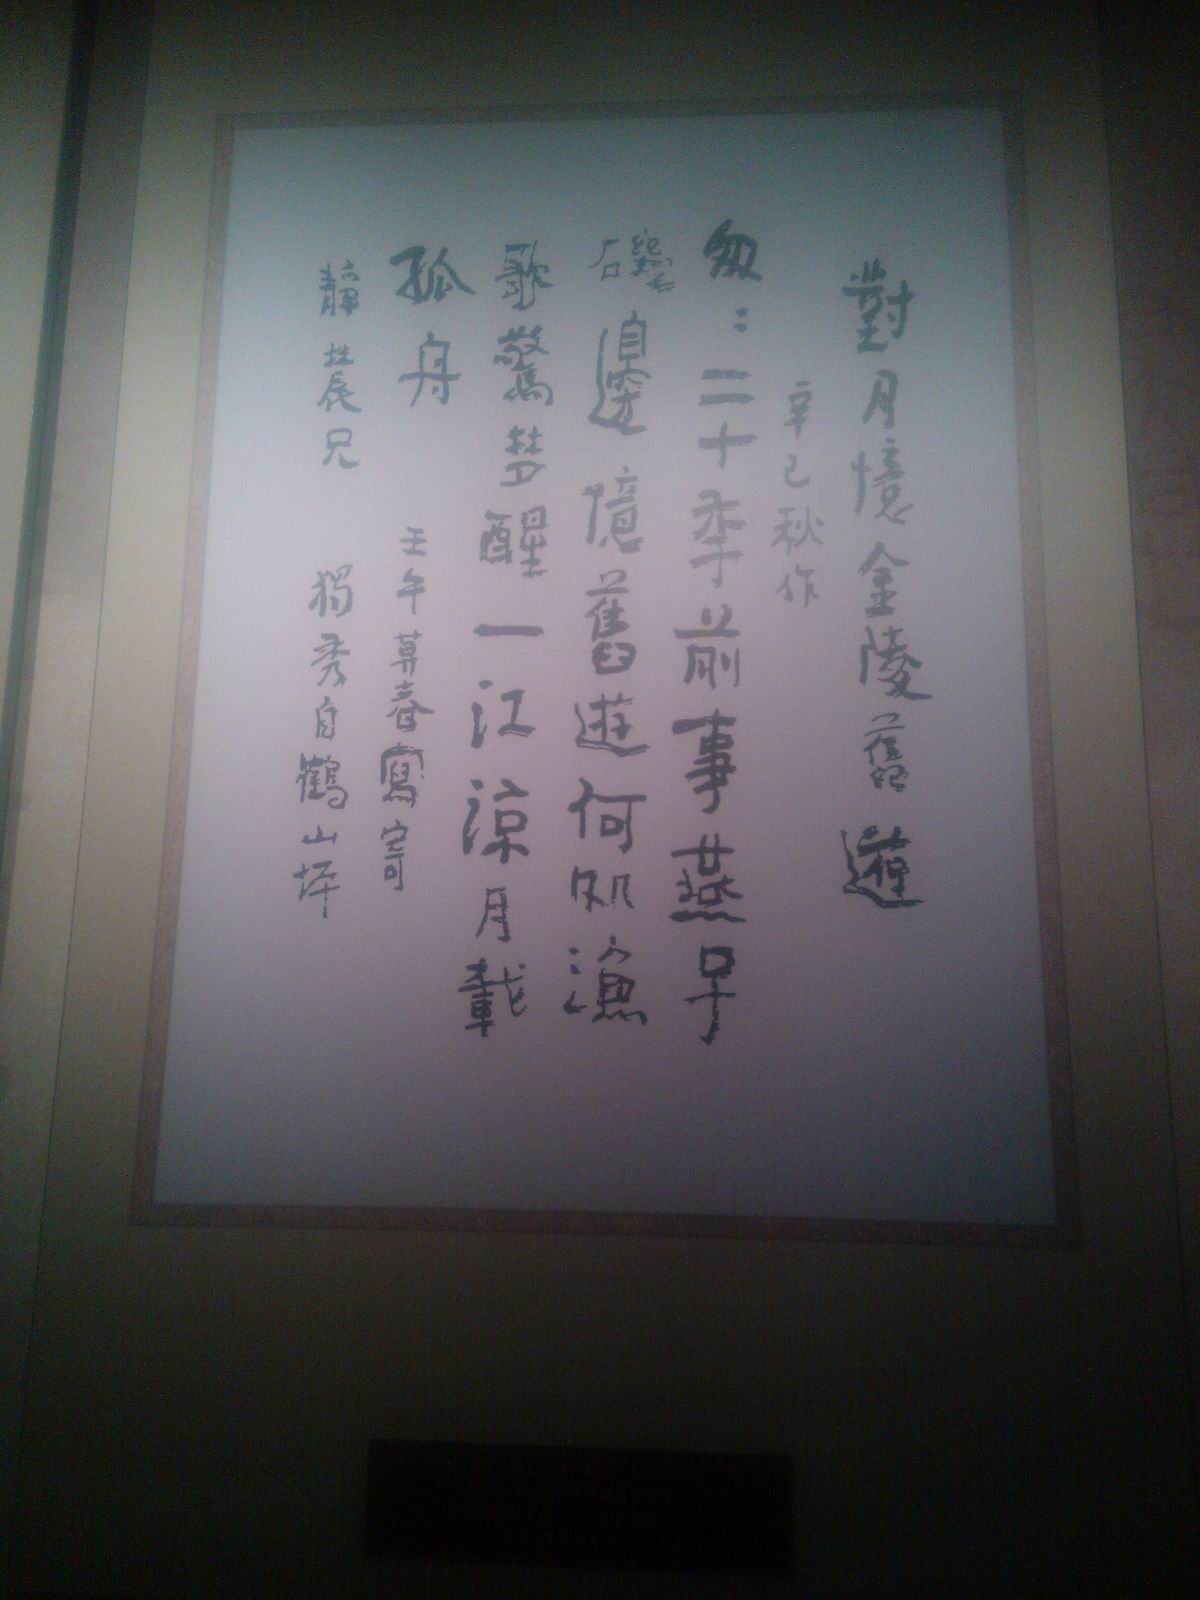 對月憶金陵舊遊
辛巳秋作
匆：二十季前事燕子
磯邊憶舊遊何処漁
歌驚夢醒一江涼月載
孤舟
壬午莫春寫寄
靜農兄
獨秀自鶴山坪